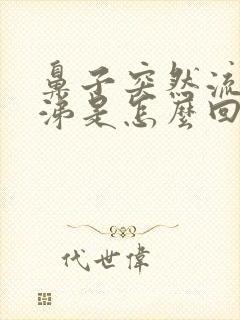 鼻子突然流
涕是怎麼回
代世偉